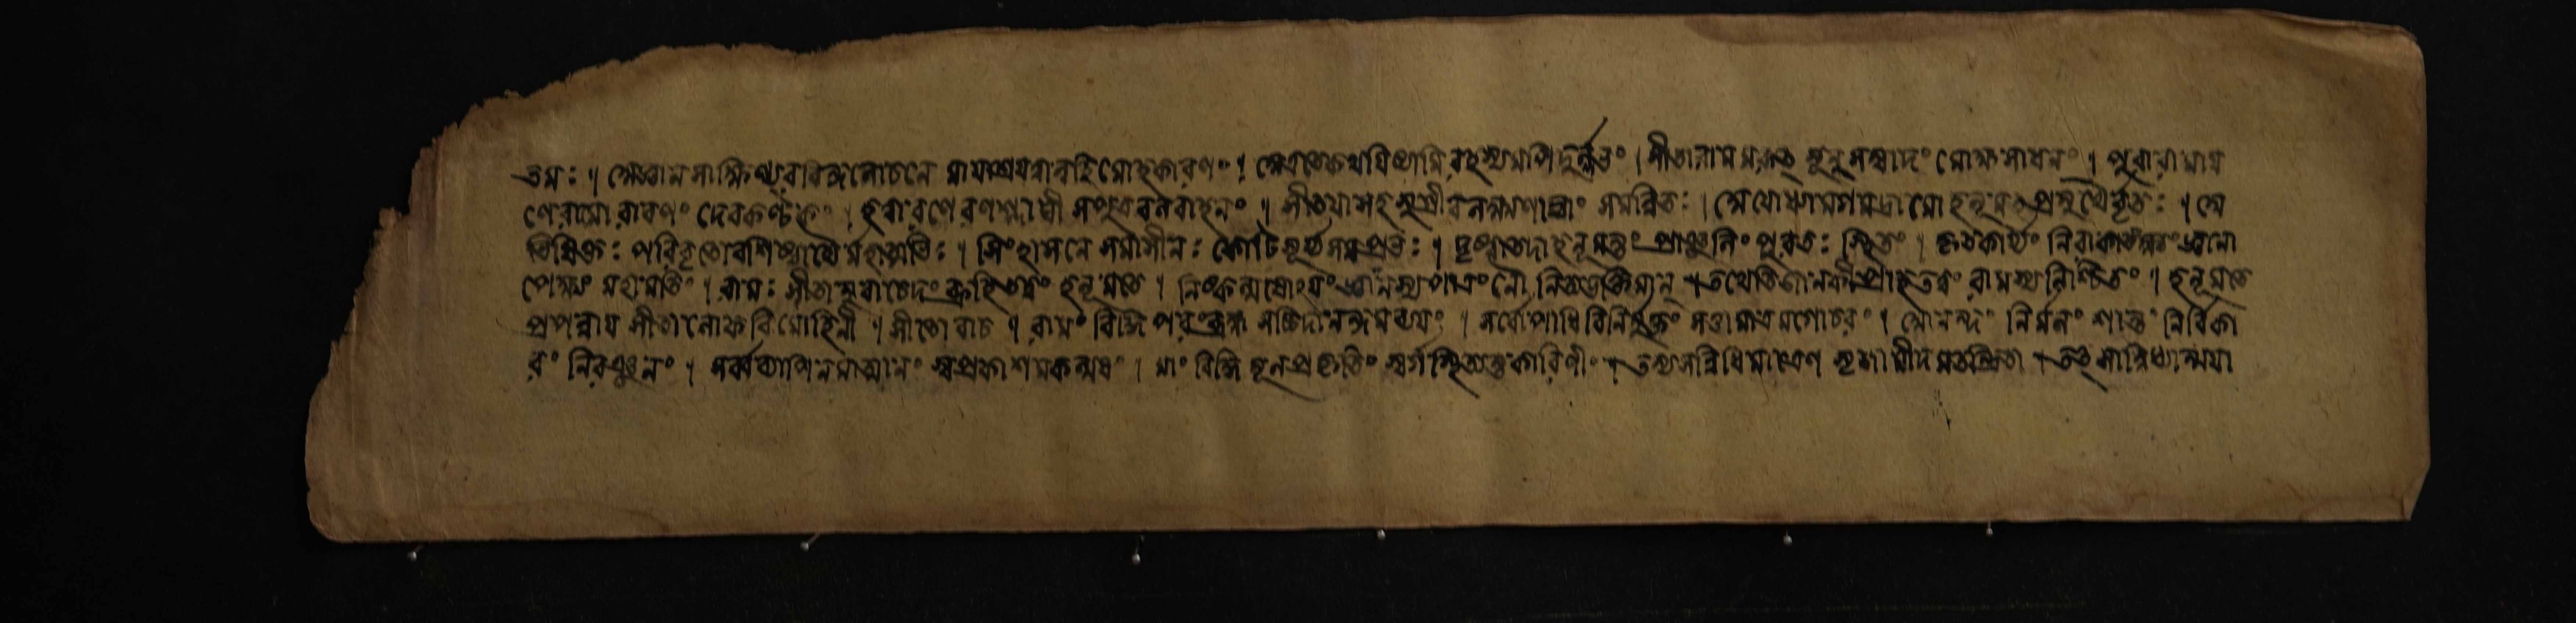 তমঃ । রহস্যমপি দুর্ল্লভং । সীতারামমরুৎ সূনুসম্বাদং মোক্ষসাধনং । পুরা রামায়
ণে রামো রাবণং দেবকণ্টকং । হত্বা রণে রণশ্লাঘী সপুত্রবলবাহনং । সীতয়া সহ সুগ্রীবলক্ষ্মণাভ্যাং সমন্বিতঃ । হনূমৎপ্রমুখৈর্বৃতঃ ।
ভিষিক্তঃ পরিবৃতো বশিষ্ঠাদ্যৈর্মহাত্মভিঃ । সিংহাসনে সমাসীনঃ কোটিসূর্য্যসমপ্রভঃ । দৃষ্ট্বা তদা হনূমন্তং প্রাঞ্জলিং পুরতঃ স্থিতং । কৃতকার্য্যং নিরাকাঙ্ক্ষং জ্ঞানা
পেক্ষং মহামতিং । রামঃ সীতামুবাচেদং ব্রূহি তত্ত্বং হনূমতে । নিষ্কল্মষোঽয়ং জ্ঞানস্য পাত্রং নৌ নিত্যভক্তিমান্ । তথেতি জানকী প্রাহ তত্ত্বং রামস্য নিশ্চিতং । হনূমতে
প্রপন্নায় সীতা লোকবিমোহিনী । সীতোবাচ । রামং বিদ্ধি পরং ব্রহ্ম সচ্চিদানন্দমদ্বয়ং । সর্বোপাধিবিনির্মুক্তং সত্তামাত্রমগোচরং । আনন্দং নির্মলং শান্তং নির্বিকা
রং নিরঞ্জনং । সর্বব্যাপিনমাত্মানং স্বপ্রকাশমকল্মষং । মাং বিদ্ধি মূলপ্রকৃতিং স্বর্গস্থিত্যন্তকারিণীং । তস্য সন্নিধিমাত্রেণ সৃজামীদমতন্দ্রিতা । তৎসান্নিধ্যান্ময়া